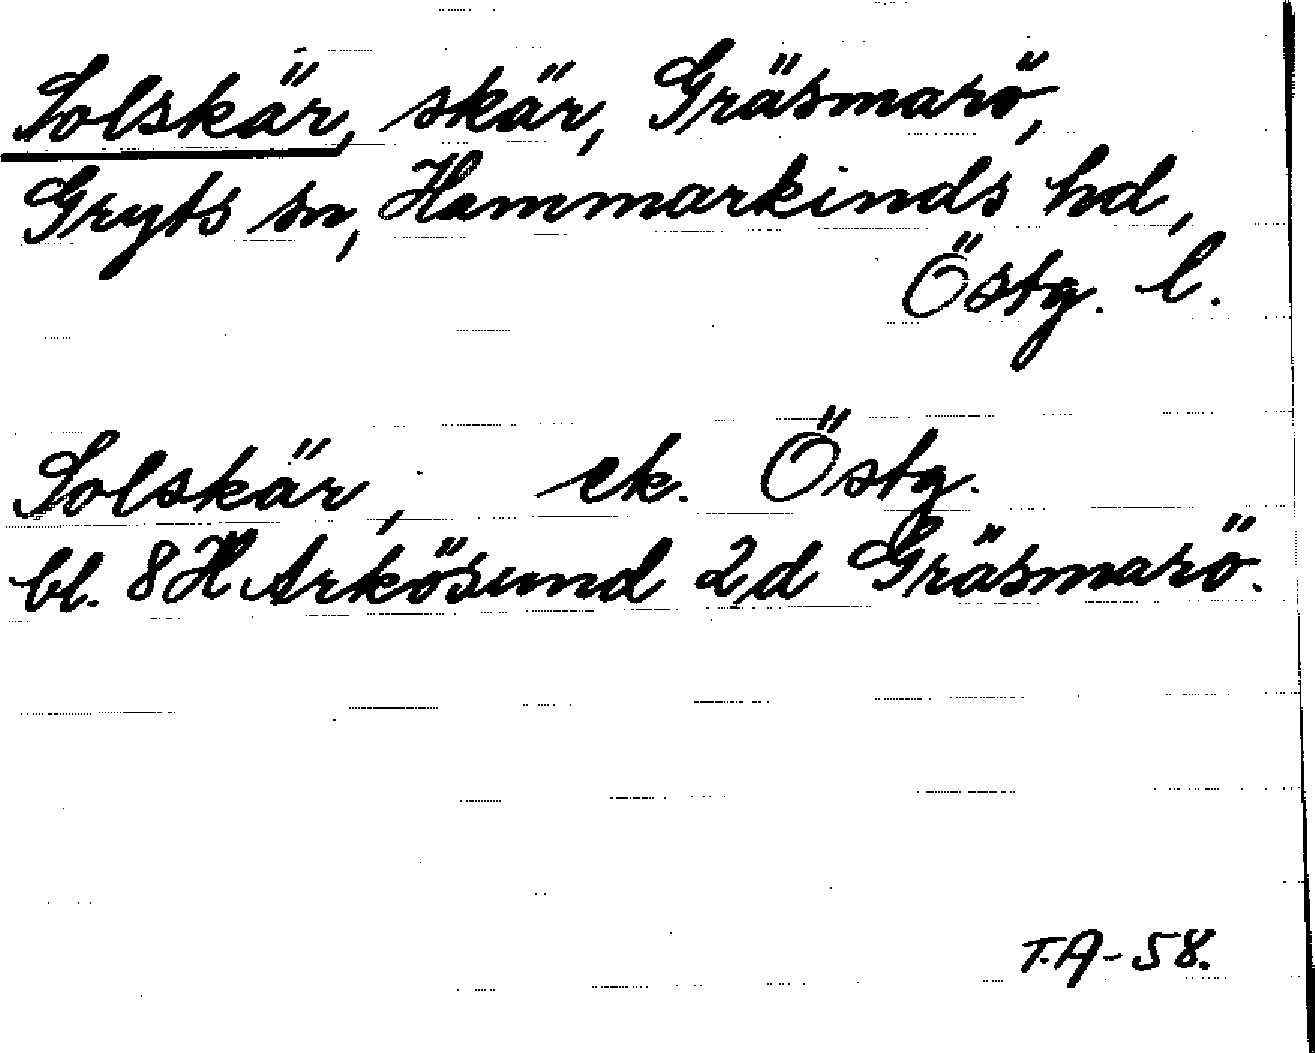 Solskär, skär, Gräsmarö,
Gryts sn, Hammarkinds hd,
Östg. l.
Solskär, ek. Östg.
bl. 8H Arkösund 2d Gräsmarö.
T.A-58.